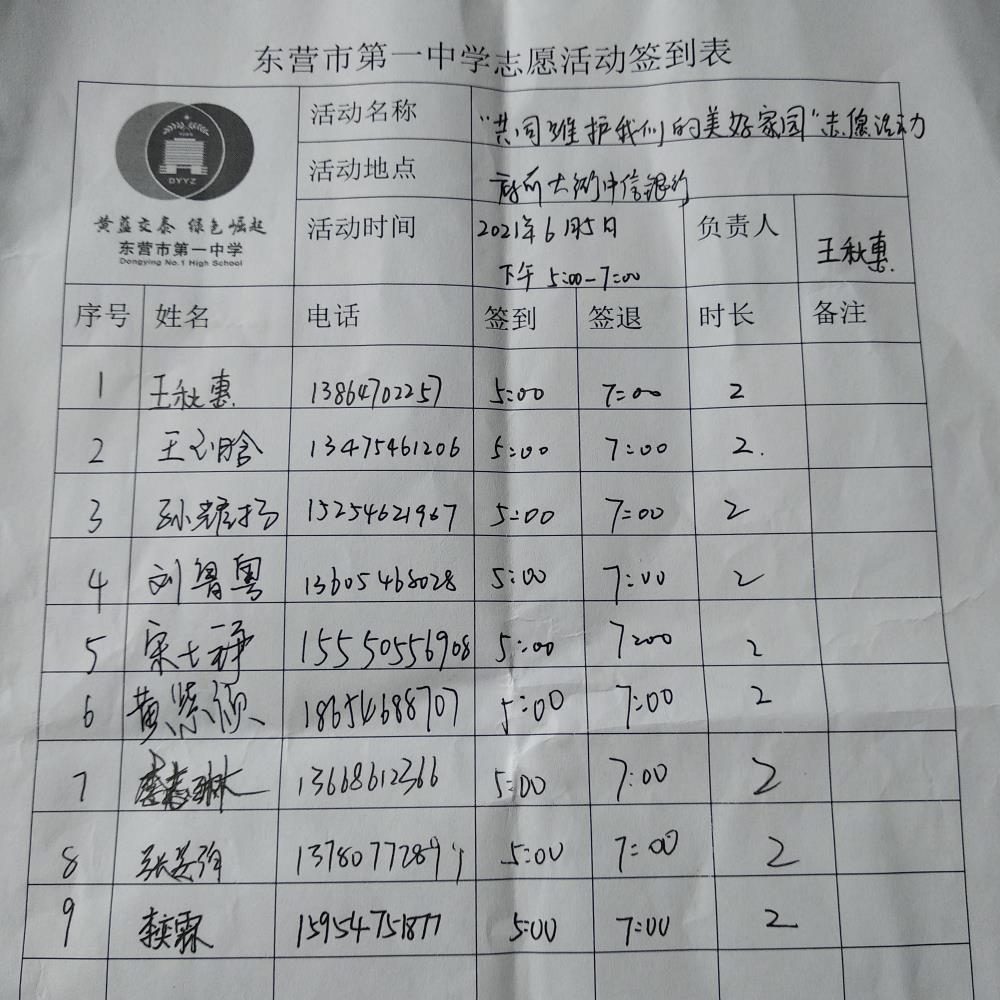 东营市第一中学志愿活动签到表
DYYZ
黄蓝交泰 绿色崛起
东营市第一中学
Dongying No.1 High School
活动名称 “共同维护我们的美好家园”志愿活动
活动地点 府前大街中信银行
活动时间 2021年6月5日 下午 5:00-7:00 负责人 王秋惠
序号 姓名 电话 签到 签退 时长 备注
1 王秋惠 13864702257 5:00 7:00 2
2 13475461206 5:00 7:00 2.
3 孙耀扬 15254621967 5:00 7:00 2
4 刘鲁粤 13605468028 5:00 7:00 2
5 15550556908 5:00 7:00 2
6 黄紫颀 18654688707 5:00 7:00 2
7 13668612366 5:00 7:00 2
8 5:00 7:00 2
9 李奕霖 15954751877 5:00 7:00 2